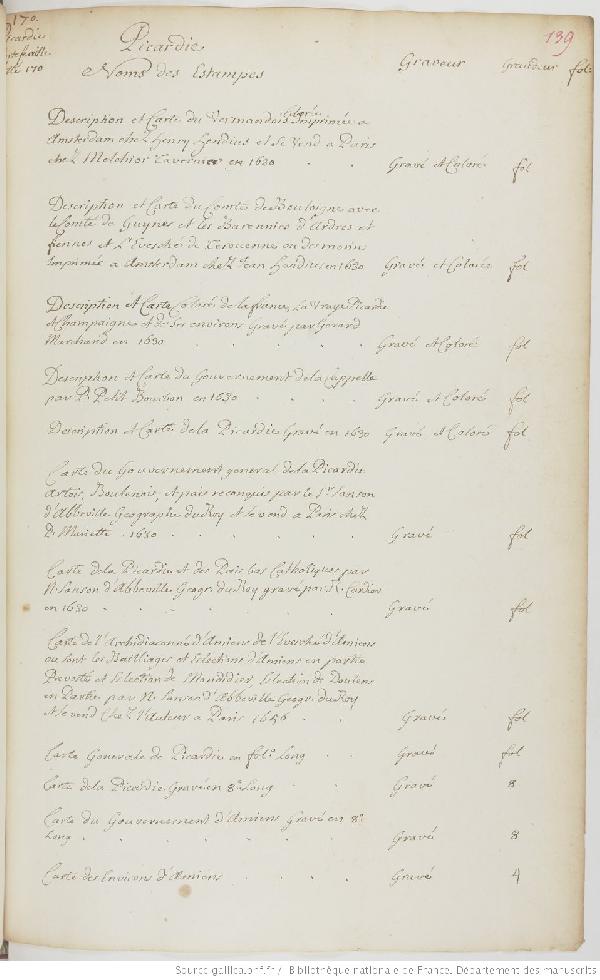 170.
Picardie
139
Picardie
170
Noms des Estampes Graveur Grandeur fol.
Description et Carte du Vermandois Imprimée a
Amsterdam chez Henry Hondius et se Vend a Paris
chez Melchior Tavernier en 1630 . . Gravé et Coloré fol
Description et Carte du Comté de Boulogne avec
le Comté de Guynes et les Barennies d'Ardres et
fiennes et L'Evesché de Terouenne ou des morins
Imprimée a Amsterdam chez Jean Hondius en 1630 Gravé et Colorée fol
Description et Carte Colorés de la france, la Vraye Picardie
et Champaigne et de ses environs Gravé par Gerard
Marchand en 1630 . . . . Gravé et Coloré fol
Description et Carte du Gouvernement de la Cappelle
par P. Petit Bourbon en 1630 . . . Gravé et Coloré fol
Description et Carte de la Picardie Gravé en 1630 Gravé et Coloré fol
Carte du Gouvernement general de la Picardie
Artois, Boulenois, et pais reconquis par le Sr Sanson
d'Abbeville Geographe du Roy et se vend a Paris chez
P. Mariette . 1650 . . . . Gravé fol
Carte de la Picardie et des Pais bas Catholiques par
N. Sanson d'Abbeville Geogr. du Roy gravé par R. Cordier
en 1630 . . . . . Gravé fol
Carte de l'Archidiaconné d'Amiens de l'Evesché d'Amiens
ou sont les Bailliages et Eslections d'Amiens en partie
Prevosté et Eslection de Mondidier Eslection de Doulens
en Partie par N. Sanson d'Abbeville Geogr. du Roy
et se vend Chez l'Auteur a Paris 1656 . Gravé fol
Carte Generale de Picardie en fol.o Long . Gravé fol
Carte de la Picardie Gravé en 8.o Long . . Gravé 8
Carte du Gouvernement d'Amiens Gravé en 8.o
Long . . . . . . Gravé 8
Carte des Environs d'Amiens . . . . Gravé 4
Source gallica.bnf.fr / Bibliothèque nationale de France. Département des manuscrits